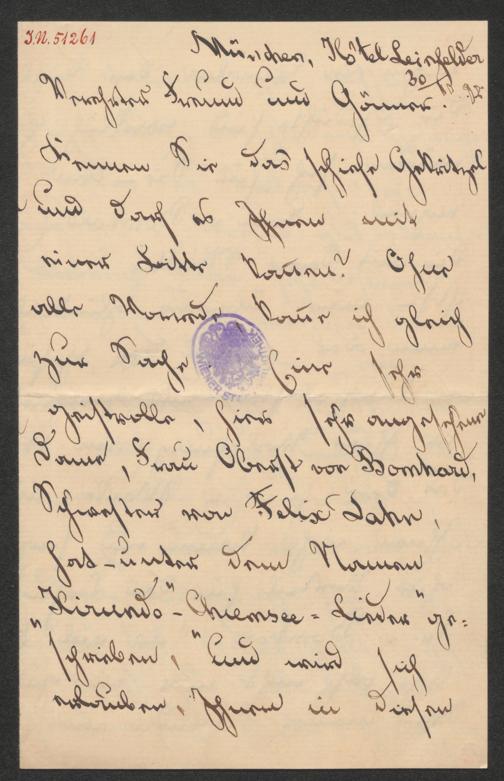 J.N. 51261
München, Hôtel Leinfelder
30/ 92
Verehrter Freund und Gönner!
Kennen Sie das schiefe Gekritzel
und darf es Ihnen mit
einer Bitte kommen? Ohne
alle Vorrede, komme ich gleich
zur Sache. Eine sehr
geistvolle, hier sehr angesehene
Dame, Frau Oberst von Bomhard,
Schwester von Felix Dahn,
hat unter dem Namen
"Hirundo"-"Chiemsee-Lieder" ge-
schrieben, und wird sich
erlauben, Ihnen in diesen